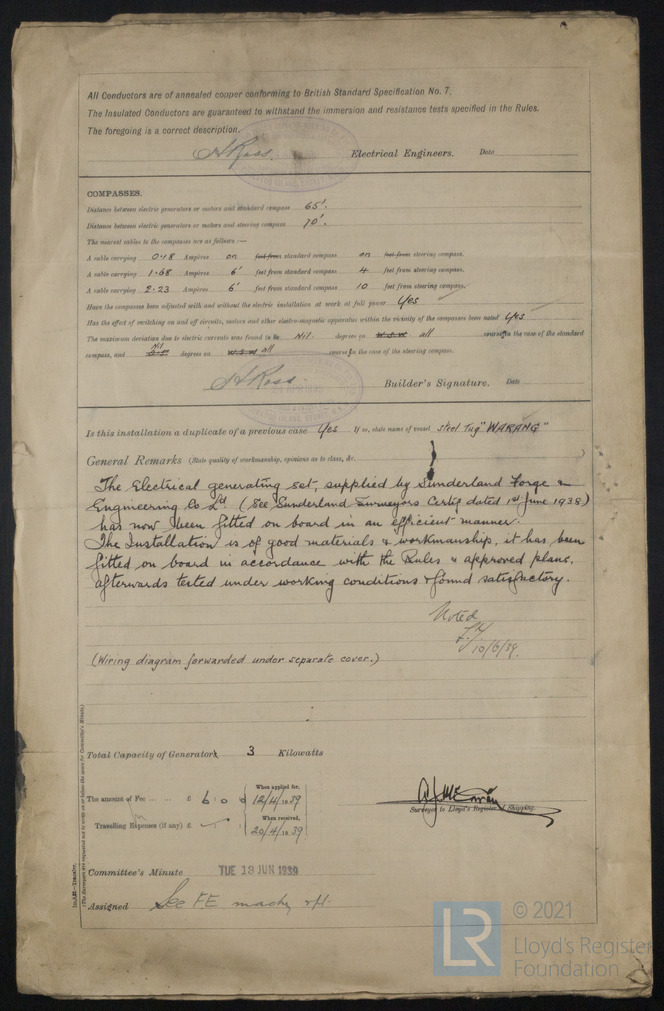 All Conductors are of annealed copper conforming to British Standard Specification No. 7.
The Insulated Conductors are guaranteed to withstand the immersion and resistance tests specified in the Rules.
The foregoing is a correct description.
A Ross. Electrical Engineers. Date
COMPASSES.
Distance between electric generators or motors and standard compass 65'.
Distance between electric generators or motors and steering compass 70'.
The nearest cables to the compasses are as follows :—
A cable carrying 0.18 Ampères on feet from standard compass on feet from steering compass.
A cable carrying 1.68 Ampères 6' feet from standard compass 4 feet from steering compass.
A cable carrying 2.23 Ampères 6' feet from standard compass 10 feet from steering compass.
Have the compasses been adjusted with and without the electric installation at work at full power Yes
Has the effect of switching on and off circuits, motors and other electro-magnetic apparatus within the vicinity of the compasses been noted Yes
The maximum deviation due to electric currents was found to be Nil. degrees on all course in the case of the standard
compass, and Nil degrees on all course in the case of the steering compass.
A Ross. Builder's Signature. Date
Is this installation a duplicate of a previous case Yes If so, state name of vessel Steel Tug "WARANG"
General Remarks (State quality of workmanship, opinions as to class, &c.
The Electrical generating set, supplied by Sunderland Forge &
Engineering Co Ltd. (See Sunderland Surveyors Certif dated 1st June 1938)
has now been fitted on board in an efficient manner.
The Installation is of good materials & workmanship, it has been
fitted on board in accordance with the Rules & approved plans,
afterwards tested under working conditions & found satisfactory.
Noted
10/6/39.
(Wiring diagram forwarded under separate cover.)
Total Capacity of Generator 3 Kilowatts
The amount of Fee ... ... £ 6 : 0 : 0
When applied for,
12/4/1939
Travelling Expenses (if any) £
When received,
20/4/1939
Surveyor to Lloyd's Register of Shipping.
Committee's Minute TUE 13 JUN 1939
Assigned See FE machy rpt.
(The Surveyors are requested not to write on or below the space for Committee's Minute.)
© 2021
LR
Lloyd's Register
Foundation